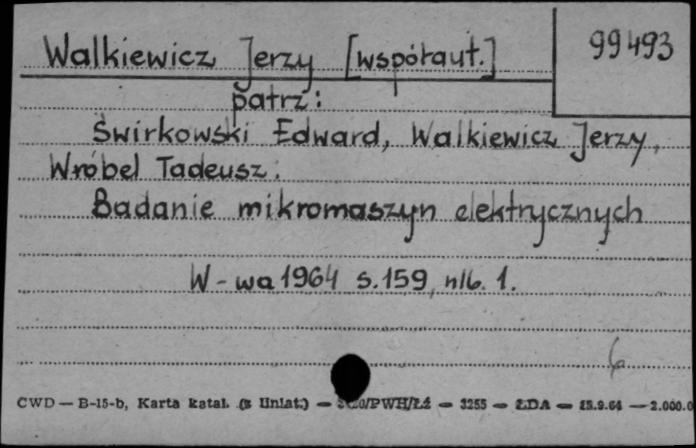 Walkiewicz Jerzy [współaut.] 99493
patrz:
Świrkowski Edward, Walkiewicz Jerzy,
Wróbel Tadeusz:
Badanie mikromaszyn elektrycznych
W-wa 1964 s. 159, nlb. 1.
6
CWD — B-15-b, Karta katal. (z liniat.) — /PWH/Łź — 3255 — ŁDA — 25.9.64 — 2.000.0